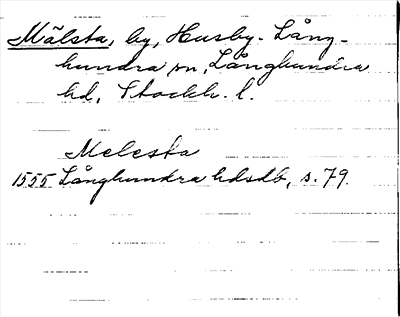 Mälsta, by, Husby-Lång-
hundra sn, Långhundra
hd, Stockh. l.
Melesta
1555 Långhundra hdsdb, s. 79.